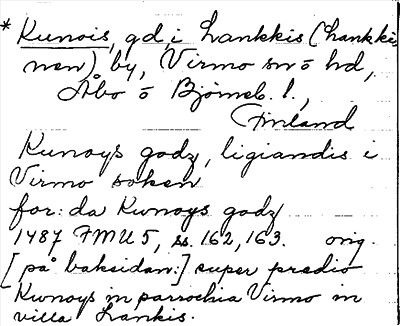 * Kunois, gd, i Lankkis (Lankki-
nen) by, Virmo sn o hd,
Åbo o Björneb. l.,
Finland
Kunoys godz, ligiandis i
Virmo soken
for: da Kunoys godz
1487 FMU 5, ss. 162, 163. orig.
[på baksidan:] super predio
Kunoys in parrochia Virmo in
villa Lankis.